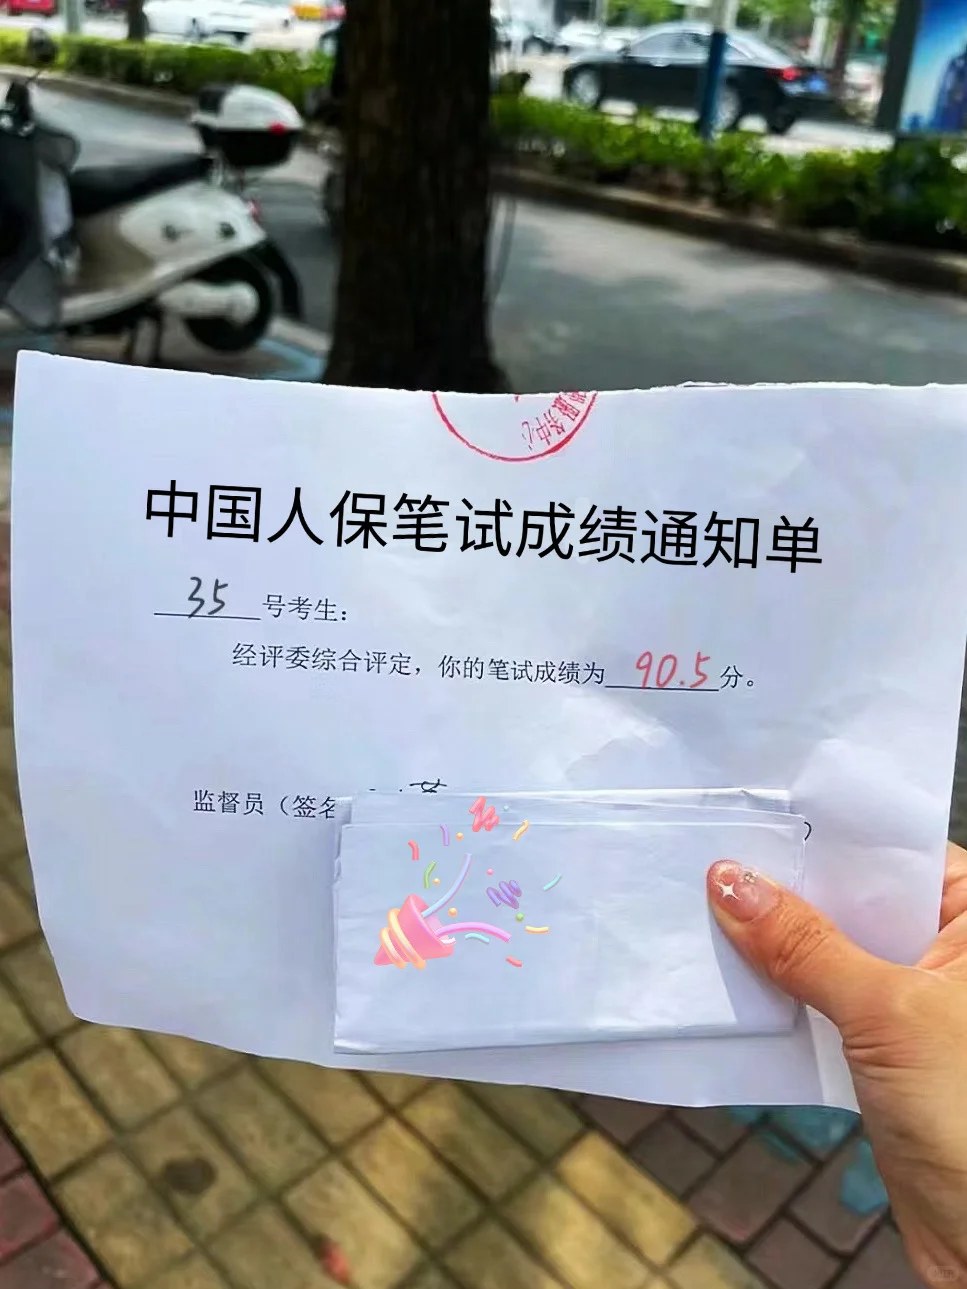 服务中心
中国人保笔试成绩通知单
35号考生：
经评委综合评定，你的笔试成绩为90.5分。
监督员（签名